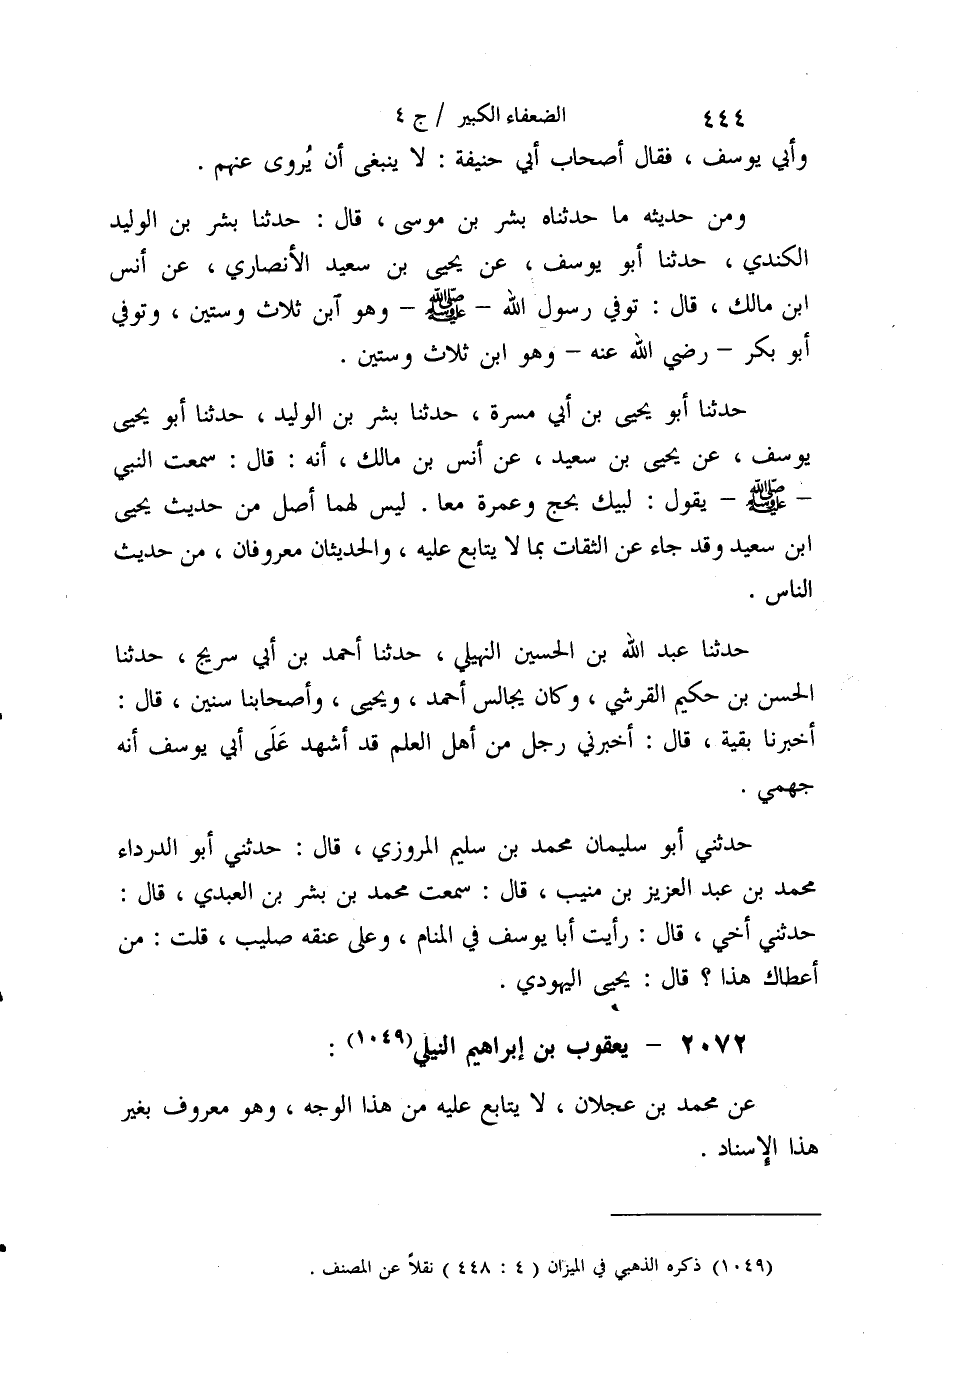 ٤٤٤ الضعفاء الكبير / ج ٤
وأبي يوسف ، فقال أصحاب أبي حنيفة : لا ينبغى أن يُروى عنهم .
ومن حديثه ما حدثناه بشر بن موسى ، قال : حدثنا بشر بن الوليد
الكندي ، حدثنا أبو يوسف ، عن يحيى بن سعيد الأنصاري ، عن أنس
ابن مالك ، قال : توفي رسول الله - ﷺ - وهو آبن ثلاث وستين ، وتوفي
أبو بكر - رضي الله عنه - وهو ابن ثلاث وستين .
حدثنا أبو يحيى بن أبي مسرة ، حدثنا بشر بن الوليد ، حدثنا أبو يحيى
يوسف ، عن يحيى بن سعيد ، عن أنس بن مالك ، أنه : قال : سمعت النبي
- ﷺ - يقول : لبيك بحج وعمرة معا . ليس لهما أصل من حديث يحيى
ابن سعيد وقد جاء عن الثقات بما لا يتابع عليه ، والحديثان معروفان ، من حديث
الناس .
حدثنا عبد الله بن الحسين النهيلي ، حدثنا أحمد بن أبي سريج ، حدثنا
الحسن بن حكيم القرشي ، وكان يجالس أحمد ، ويحيى ، وأصحابنا سنين ، قال :
أخبرنا بقية ، قال : أخبرني رجل من أهل العلم قد أشهد عَلَى أبي يوسف أنه
جهمي .
حدثني أبو سليمان محمد بن سليم المروزي ، قال : حدثني أبو الدرداء
محمد بن عبد العزيز بن منيب ، قال : سمعت محمد بن بشر بن العبدي ، قال :
حدثني أخي ، قال : رأيت أبا يوسف في المنام ، وعلى عنقه صليب ، قلت : من
أعطاك هذا ؟ قال : يحيى اليهودي .
٢٠٧٢ - يعقوب بن إبراهيم النيلي(١٠٤٩) :
عن محمد بن عجلان ، لا يتابع عليه من هذا الوجه ، وهو معروف بغير
هذا الإسناد .
(١٠٤٩) ذكره الذهبي في الميزان ( ٤ : ٤٤٨ ) نقلاً عن المصنف .